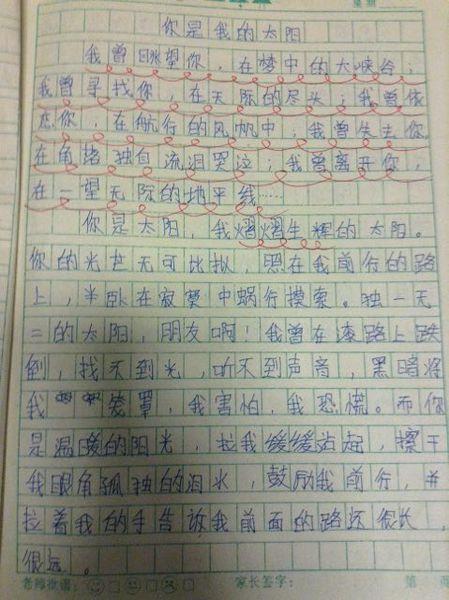 你是我的太阳
我曾眺望你，在梦中的大峡谷；
我曾寻找你，在天际的尽头；我曾依
恋你，在航行的风帆中，我曾失去你，
在角落独自流泪哭泣；我曾离开你，
在一望无际的地平线……
你是太阳，我熠熠生辉的太阳。
你的光芒无可比拟，照在我前行的路
上，半卧在寂寞中蜗行摸索。独一无
二的太阳，朋友啊！我曾在漆路上跌
倒，找不到光，听不到声音，黑暗将
我笼罩，我害怕，我恐慌。而你
是温暖的阳光，拉我缓缓站起，擦干
我眼角孤独的泪水，鼓励我前行，并
拉着我的手告诉我前面的路还很长，
很远。
老师批语：
家长签字：
第 页